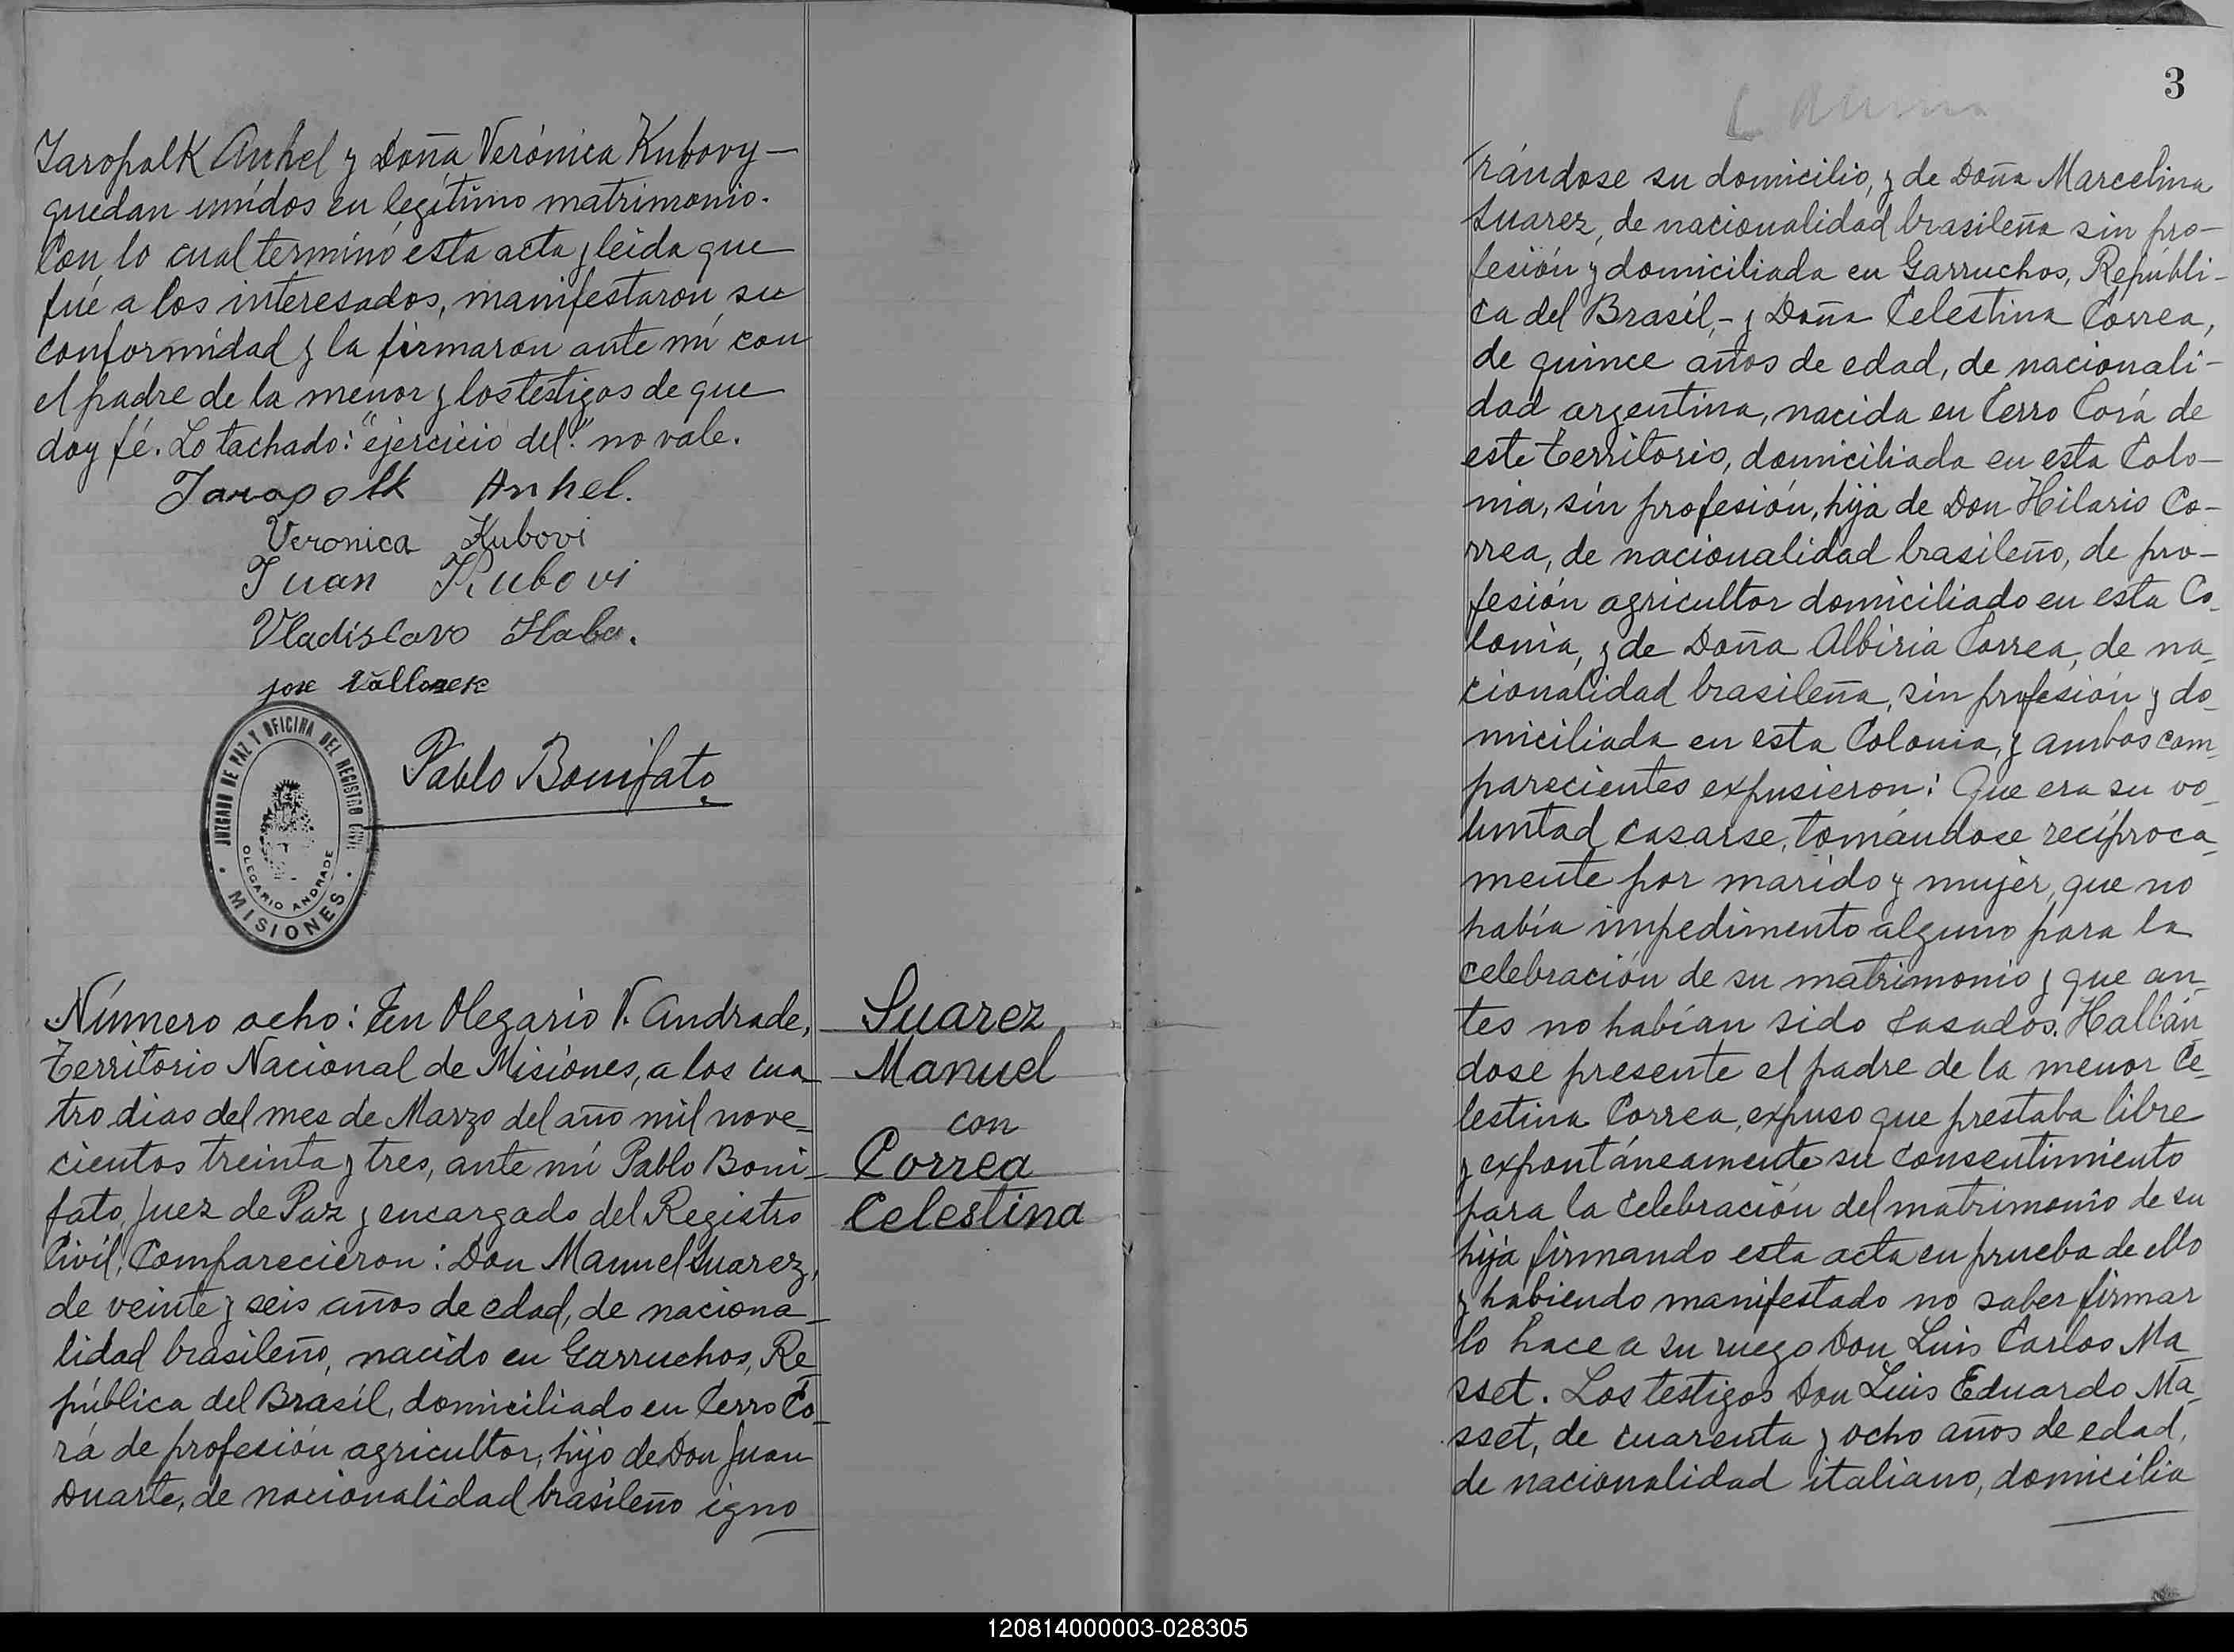 Jaropolk Anhel y Doña Verónica Kubovy—
quedan unidos en legítimo matrimonio.
Con lo cual terminó esta acta y leída que
fué a los interesados, manifestaron su
conformidad y la firmaron ante mí con
el padre de la menor y los testigos de que
doy fé. Lo tachado: "ejercicio del" no vale.
Jaropolk Anhel.
Veronica Kubovi
Juan Kubovi
Vladislavo
jose
Pablo Bonifato
JUZGADO DE PAZ Y OFICINA DEL REGISTRO CIVIL
OLEGARIO ANDRADE
· MISIONES ·
Número ocho: En Olegario V. Andrade,
Territorio Nacional de Misiones, a los cua
tro dias del mes de Marzo del año mil nove
cientos treinta y tres, ante mí Pablo Boni
fato, Juez de Paz y encargado del Registro
Civil, Comparecieron: Don Manuel Suarez,
de veinte y seis años de edad, de naciona
lidad brasileño, nacido en Garruchos, Re
pública del Brasil, domiciliado en Cerro Co
rá de profesión agricultor, hijo de Don Juan
Duarte, de nacionalidad brasileño igno
Suarez
Manuel
con
Correa
Celestina
3
rándose su domicilio, y de Doña Marcelina
Suarez, de nacionalidad brasileña sin pro-
fesión y domiciliada en Garruchos, Repúbli-
ca del Brasil,- y Doña Celestina Correa,
de quince años de edad, de nacionali-
dad argentina, nacida en Cerro Corá de
este territorio, domiciliada en esta Colo-
nia, sin profesión, hija de Don Hilario Co-
rrea, de nacionalidad brasileño, de pro-
fesión agricultor domiciliado en esta Co
lonia, y de Doña Albiria Correa, de na
cionalidad brasileña, sin profesión y do
miciliada en esta Colonia, y ambos com
parecientes expusieron: Que era su vo
luntad casarse, tomándose recíproca
mente por marido y mujer, que no
había impedimento alguno para la
celebración de su matrimonio y que an
tes no habían sido casados. Hallán
dose presente el padre de la menor Ce
lestina Correa, expuso que prestaba libre
y expontáneamente su consentimiento
para la celebración del matrimonio de su
hija firmando esta acta en prueba de ello
y habiendo manifestado no saber firmar
lo hace a su ruego Don Luis Carlos Ma
sset. Los testigos Don Luis Eduardo Ma
sset, de cuarenta y ocho años de edad,
de nacionalidad italiano, domicilia
120814000003-028305